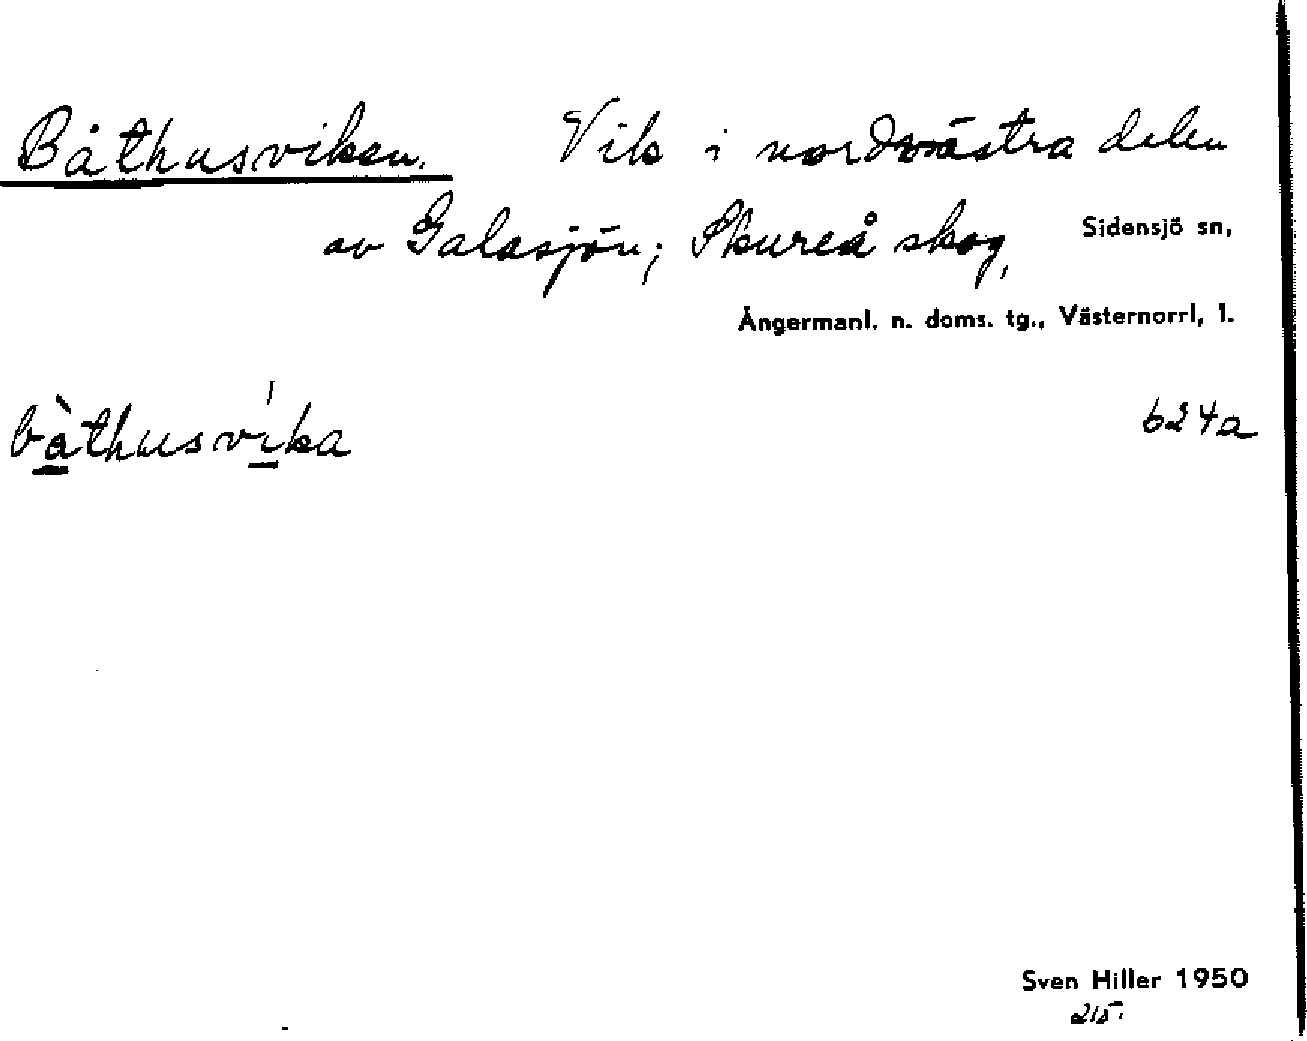 Båthusviken. Vik i nordvästra delen
av Galasjön; Skureå skog, Sidensjö sn,
Ångermanl. n. doms. tg., Västernorrl, l.
bàthusvi̍ka 624a
Sven Hiller 1950
215.